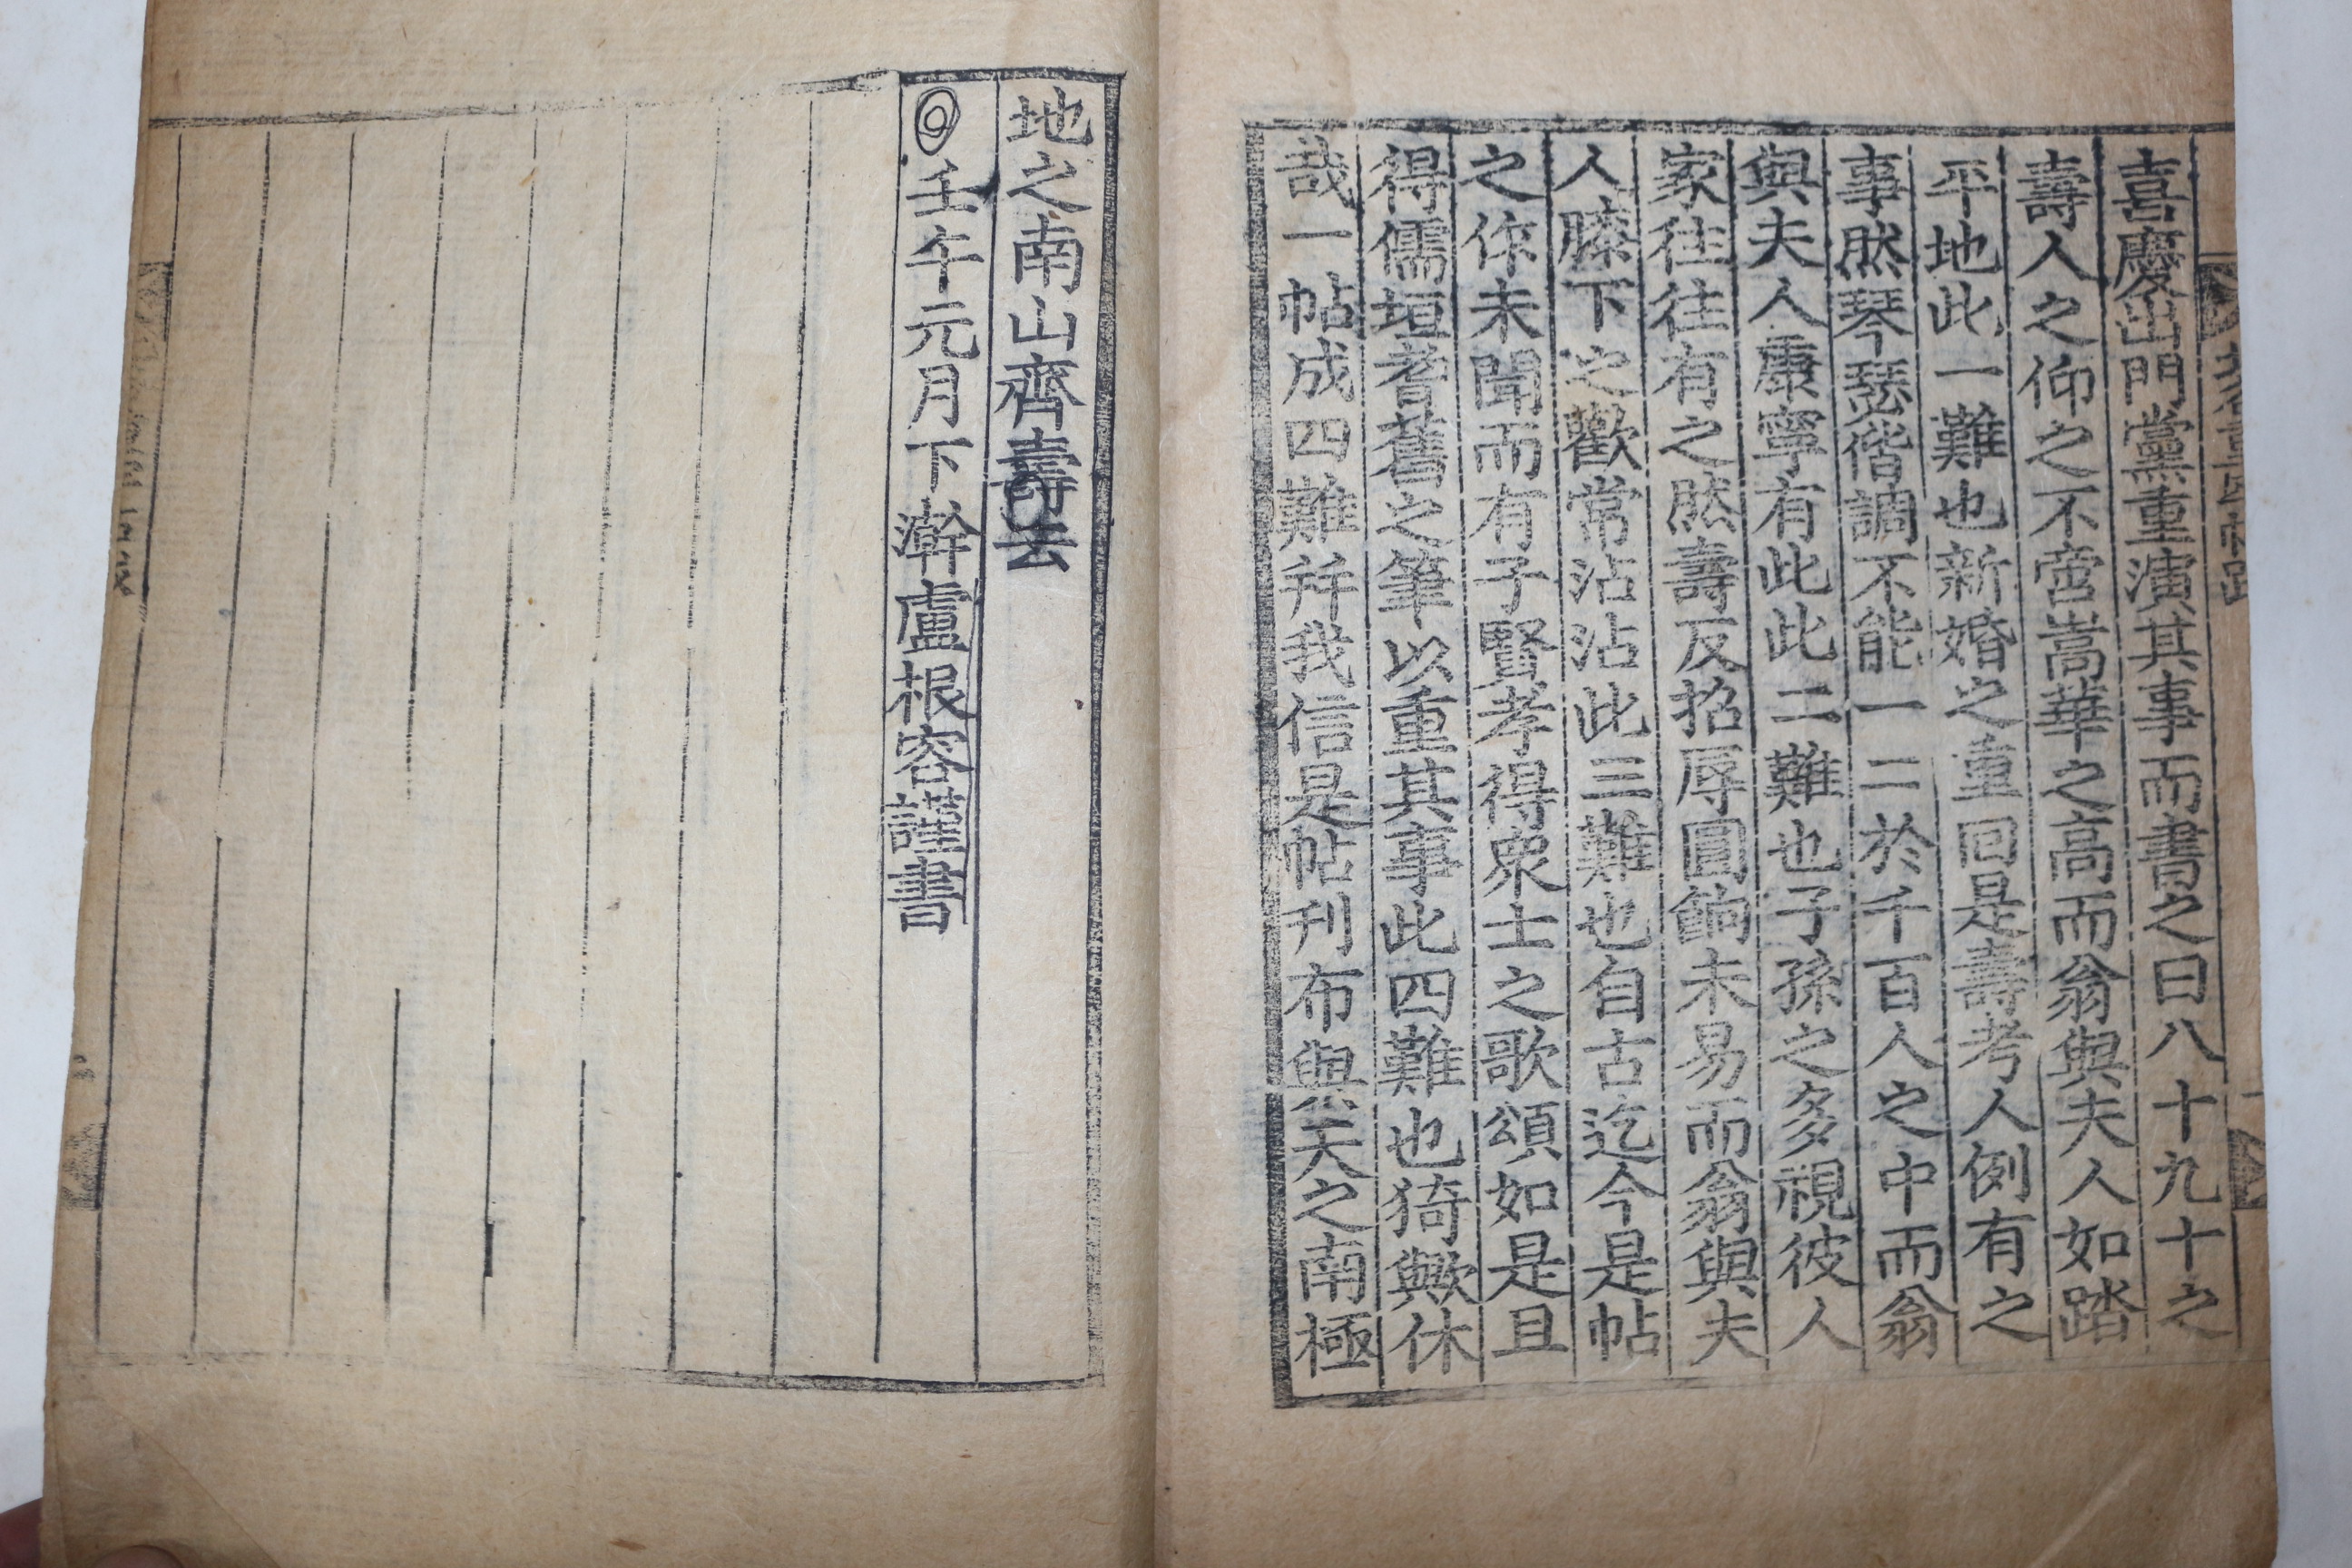 喜慶出門黨重演其事而書之曰八十九十之
壽人之仰之不啻嵩華之高而翁與夫人如踏
平地此一難也新婚之重回是壽考人例有之
事然琴瑟偕調不能一二於千百人之中而翁
與夫人康寧有此此二難也子孫之多視彼人
家往往有之然壽反招辱圓餉未易而翁與夫
人膝下之歡常沾沾此三難也自古迄今是帖
之作未聞而有子賢孝得衆士之歌頌如是且
得儒垣耆舊之筆以重其事此四難也猗歟休
哉一帖成四難幷我信是帖刊布與天之南極
地之南山齊壽云
壬午元月下澣盧根容謹書